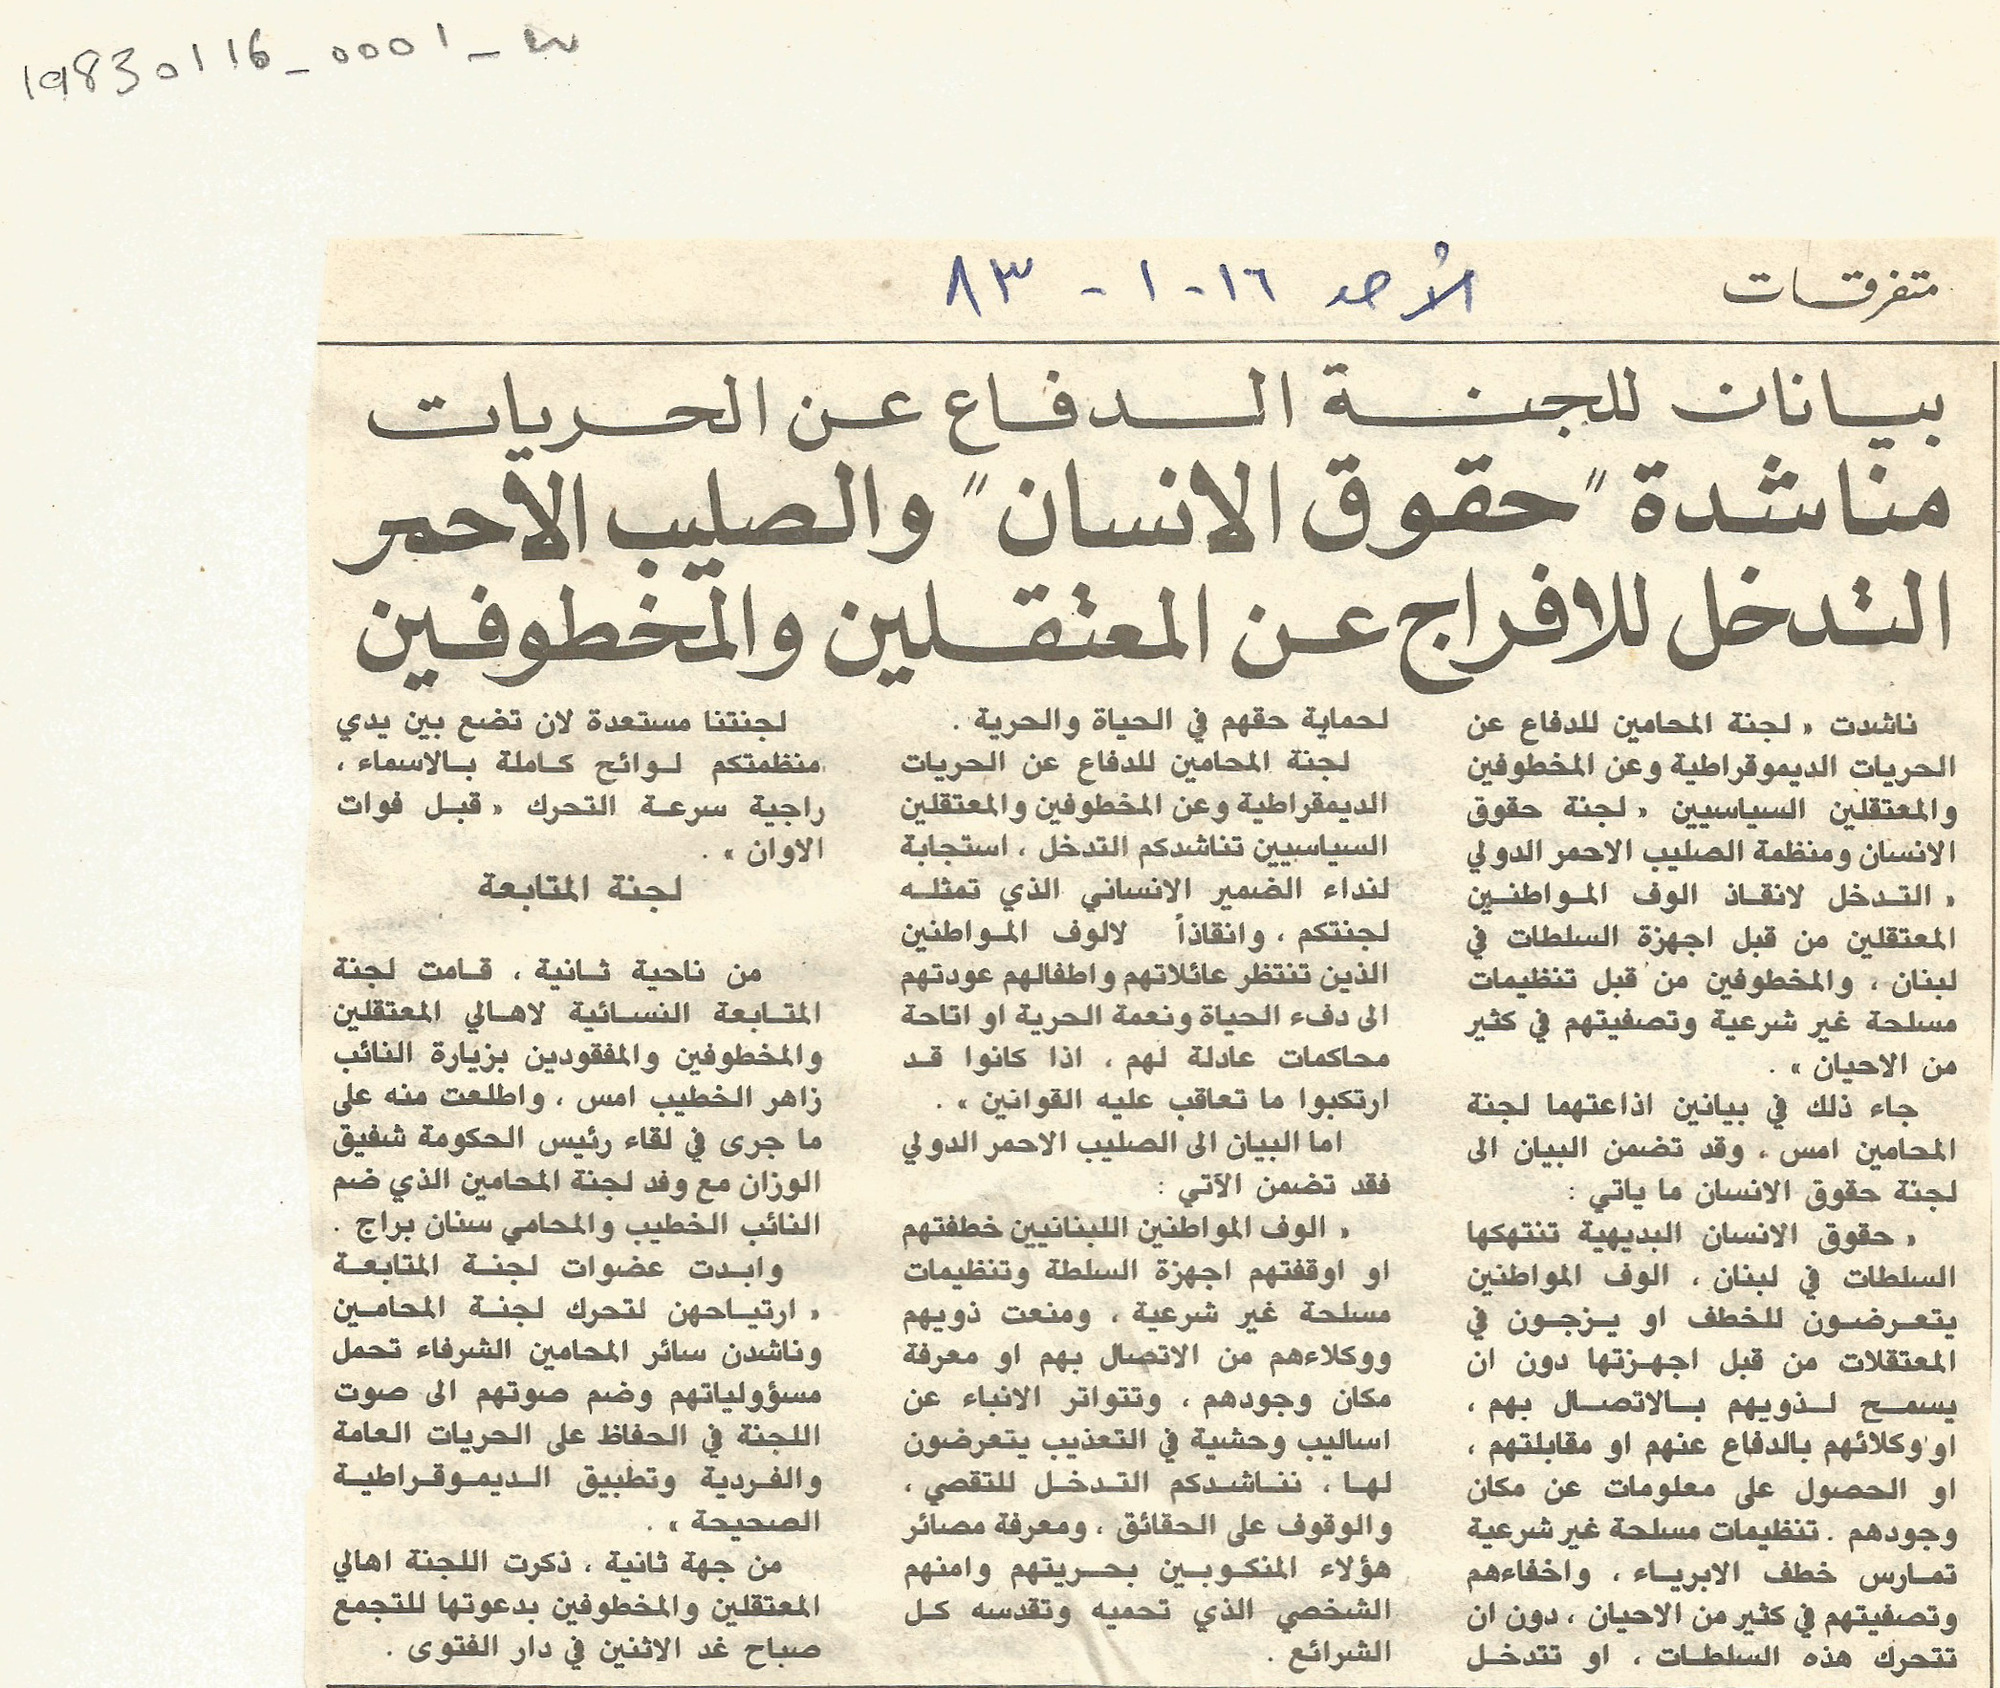 19830116_0001_س
متفرقات
الأحد ١٦ - ١ - ٨٣
بيانان للجنة الدفاع عن الحريات
مناشدة "حقوق الانسان" والصليب الأحمر
التدخل للافراج عن المعتقلين والمخطوفين
ناشدت « لجنة المحامين للدفاع عن
الحريات الديموقراطية وعن المخطوفين
والمعتقلين السياسيين « لجنة حقوق
الانسان ومنظمة الصليب الاحمر الدولي
« التدخل لانقاذ الوف المواطنين
المعتقلين من قبل اجهزة السلطات في
لبنان ، والمخطوفين من قبل تنظيمات
مسلحة غير شرعية وتصفيتهم في كثير
من الاحيان » .
جاء ذلك في بيانين اذاعتهما لجنة
المحامين امس ، وقد تضمن البيان الى
لجنة حقوق الانسان ما ياتي :
« حقوق الانسان البديهية تنتهكها
السلطات في لبنان ، الوف المواطنين
يتعرضون للخطف او يزجون في
المعتقلات من قبل اجهزتها دون ان
يسمح لذويهم بالاتصال بهم ،
او وكلائهم بالدفاع عنهم او مقابلتهم ،
او الحصول على معلومات عن مكان
وجودهم . تنظيمات مسلحة غير شرعية
تمارس خطف الابرياء ، واخفاءهم
وتصفيتهم في كثير من الاحيان ، دون ان
تتحرك هذه السلطات ، او تتدخل
لحماية حقهم في الحياة والحرية .
لجنة المحامين للدفاع عن الحريات
الديمقراطية وعن المخطوفين والمعتقلين
السياسيين تناشدكم التدخل ، استجابة
لنداء الضمير الانساني الذي تمثله
لجنتكم ، وانقاذاً لالوف المواطنين
الذين تنتظر عائلاتهم واطفالهم عودتهم
الى دفء الحياة ونعمة الحرية او اتاحة
محاكمات عادلة لهم ، اذا كانوا قد
ارتكبوا ما تعاقب عليه القوانين » .
اما البيان الى الصليب الاحمر الدولي
فقد تضمن الآتي :
« الوف المواطنين اللبنانيين خطفتهم
او اوقفتهم اجهزة السلطة وتنظيمات
مسلحة غير شرعية ، ومنعت ذويهم
ووكلاءهم من الاتصال بهم او معرفة
مكان وجودهم ، وتتواتر الانباء عن
اساليب وحشية في التعذيب يتعرضون
لها ، نناشدكم التدخل للتقصي ،
والوقوف على الحقائق ، ومعرفة مصائر
هؤلاء المنكوبين بحريتهم وامنهم
الشخصي الذي تحميه وتقدسه كل
الشرائع .
لجنتنا مستعدة لان تضع بين يدي
منظمتكم لوائح كاملة بالاسماء ،
راجية سرعة التحرك « قبل فوات
الاوان » .
لجنة المتابعة
من ناحية ثانية ، قامت لجنة
المتابعة النسائية لاهالي المعتقلين
والمخطوفين والمفقودين بزيارة النائب
زاهر الخطيب امس ، واطلعت منه على
ما جرى في لقاء رئيس الحكومة شفيق
الوزان مع وفد لجنة المحامين الذي ضم
النائب الخطيب والمحامي سنان براج .
وابدت عضوات لجنة المتابعة
« ارتياحهن لتحرك لجنة المحامين
وناشدن سائر المحامين الشرفاء تحمل
مسؤولياتهم وضم صوتهم الى صوت
اللجنة في الحفاظ على الحريات العامة
والفردية وتطبيق الديموقراطية
الصحيحة » .
من جهة ثانية ، ذكرت اللجنة اهالي
المعتقلين والمخطوفين بدعوتها للتجمع
صباح غد الاثنين في دار الفتوى .